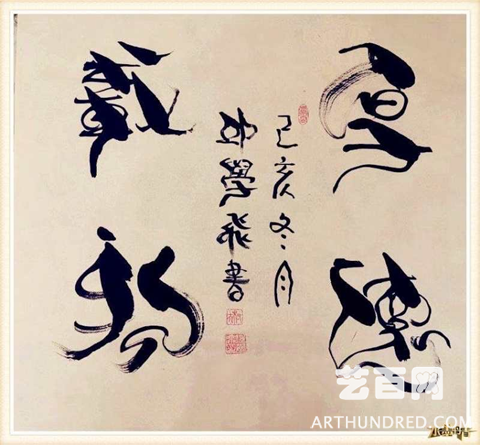 厚德
己亥冬月
學書
載物
艺百网
ARTHUNDRED.COM